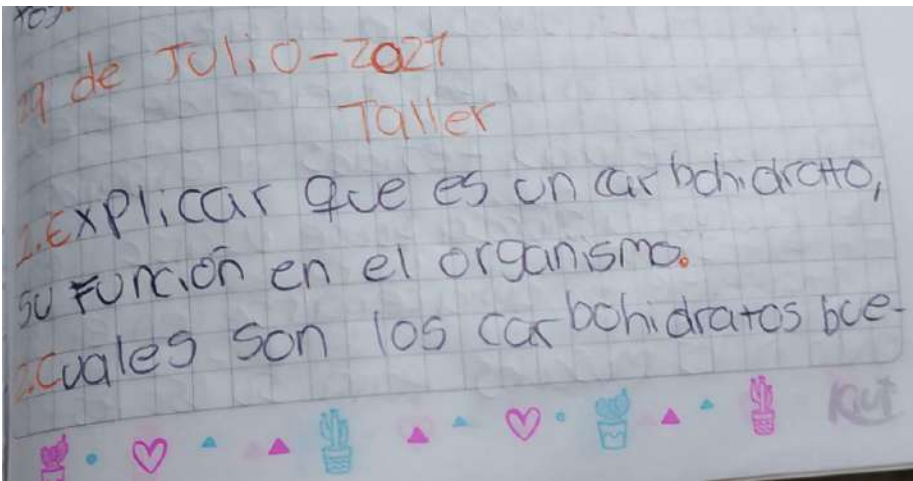 de Julio-2021
Taller
1.Explicar que es un carbohidrato,
su Función en el organismo.
2.Cuales son los carbohidratos bue-